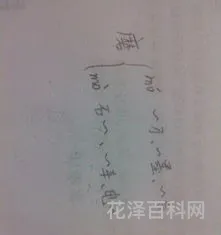 磨
mó ～刀、～墨、～
mò 石～、～
花泽百科网